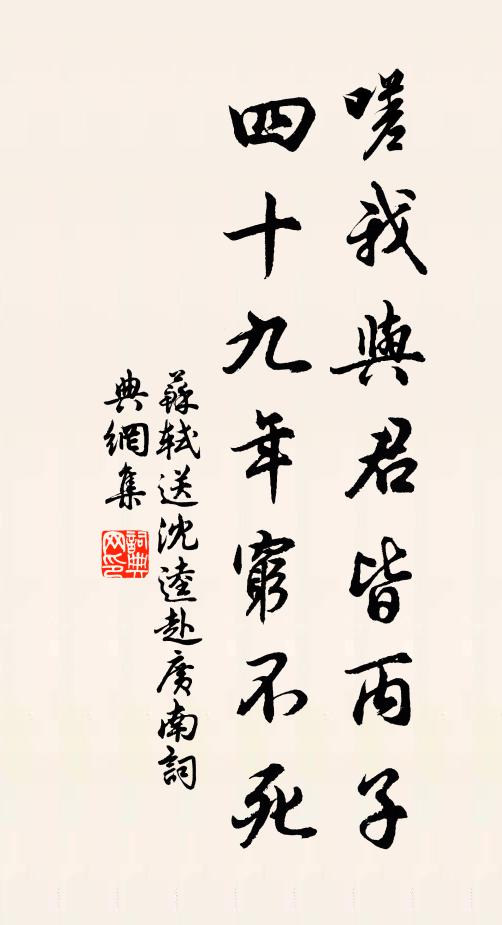 嗟我與君皆丙子
四十九年窮不死
蘇軾送沈逵赴廣南詞
典網集
詞典网印